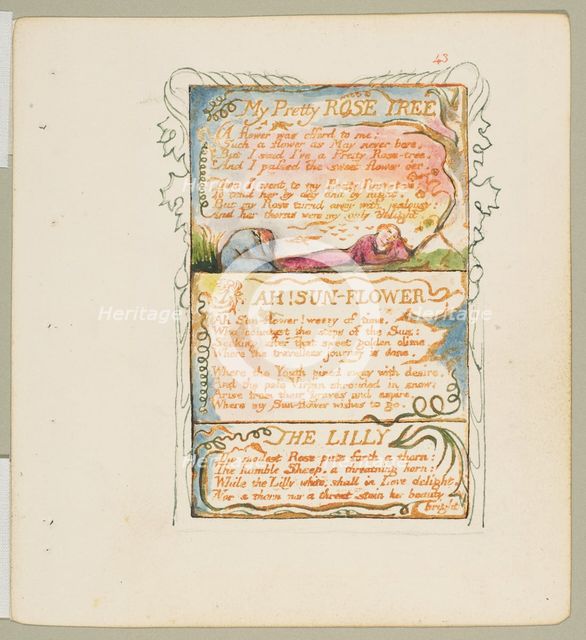 43
My Pretty ROSE TREE
A flower was offerd to me:
Such a flower as May never bore.
But I said I've a Pretty Rose-tree,
And I passed the sweet flower o'er.
Then I went to my Pretty Rose-tree:
To tend her by day and by night.
But my Rose turnd away with jealousy:
And her thorns were my only delight.
AH! SUN-FLOWER
Ah Sun-flower! weary of time,
Who countest the steps of the Sun:
Seeking after that sweet golden clime
Where the travellers journey is done.
Where the Youth pined away with desire,
And the pale Virgin shrouded in snow:
Arise from their graves and aspire,
Where my Sun-flower wishes to go.
THE LILLY
The modest Rose puts forth a thorn:
The humble Sheep, a threatning horn:
While the Lilly white, shall in Love delight,
Nor a thorn nor a threat stain her beauty
bright
Heritage
Heritage
Heritage